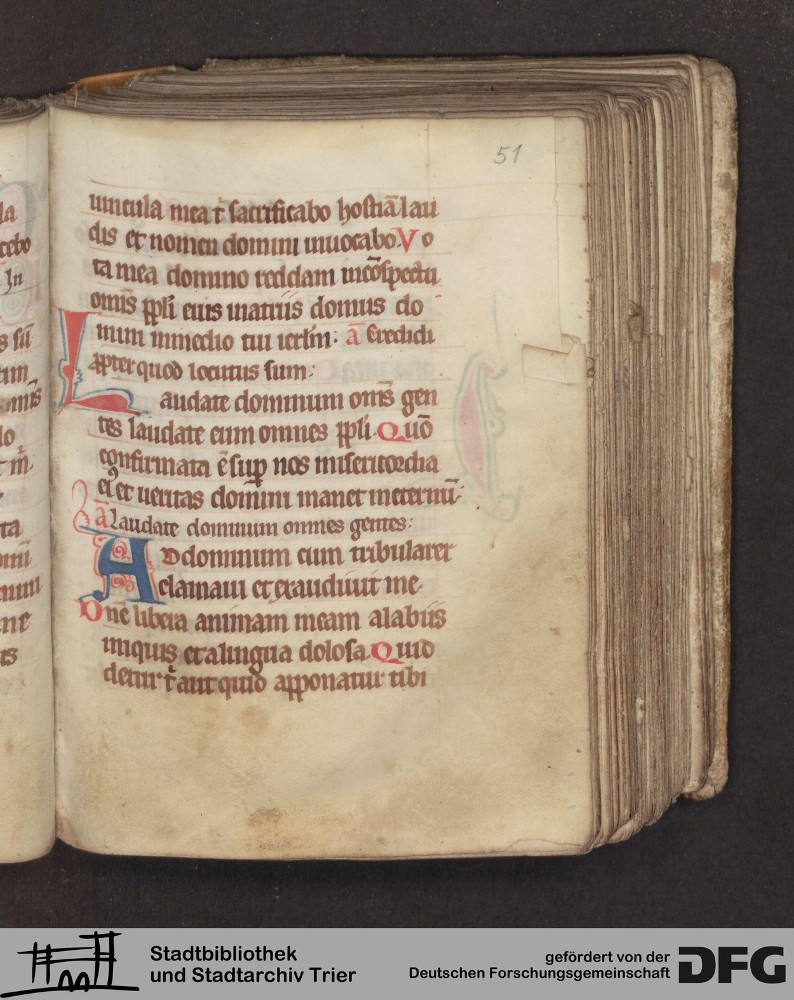 51
la
cebo
In
s sū
um
omīs
lo
t m̄.
ta
omī
ne
ts
uincula mea t̄ sacrificabo hostiā lau
dis et nomen domini inuocabo. Vo
ta mea domino reddam incōspectu
omīs ppli eius inatriis domus do
mini inmedio tui ierl̄m: ā Credidi
ꝓpter quod locutus sum:
Laudate dominum omīs gen
tes laudate eum omnes ppli. Quō
confirmata ē sup nos misericordia
eiꝰ et ueritas domini manet ineternū.
ā Laudate dominum omnes gentes:
Ad dominum cum tribularer
clamaui et exaudiuit me
Dn̄e libera animam meam alabiis
iniquis et alingua dolosa. Quid
detur t̄ aut quid apponatur tibi
Stadtbibliothek
und Stadtarchiv Trier
gefördert von der
Deutschen Forschungsgemeinschaft
DFG